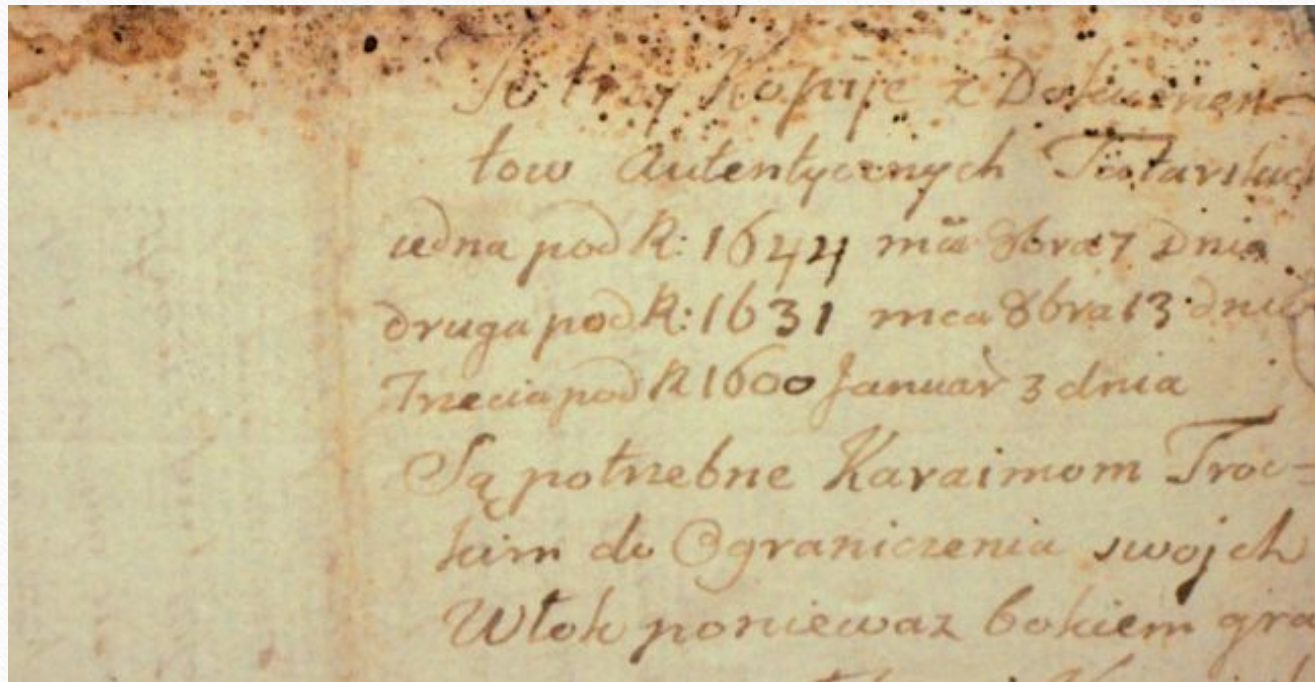 Te trzy Kopije z Dokumen-
tow autentycznych Tatarskic
iedna pod R: 1644 mca 8bra 7 dnia
druga pod R: 1631 mca 8bra 13 dnia
Trzecia pod R 1600 Januar 3 dnia
Są potrzebne Karaimom Troc-
kim do Ograniczenia swojch
Włok poniewaz bokiem gra